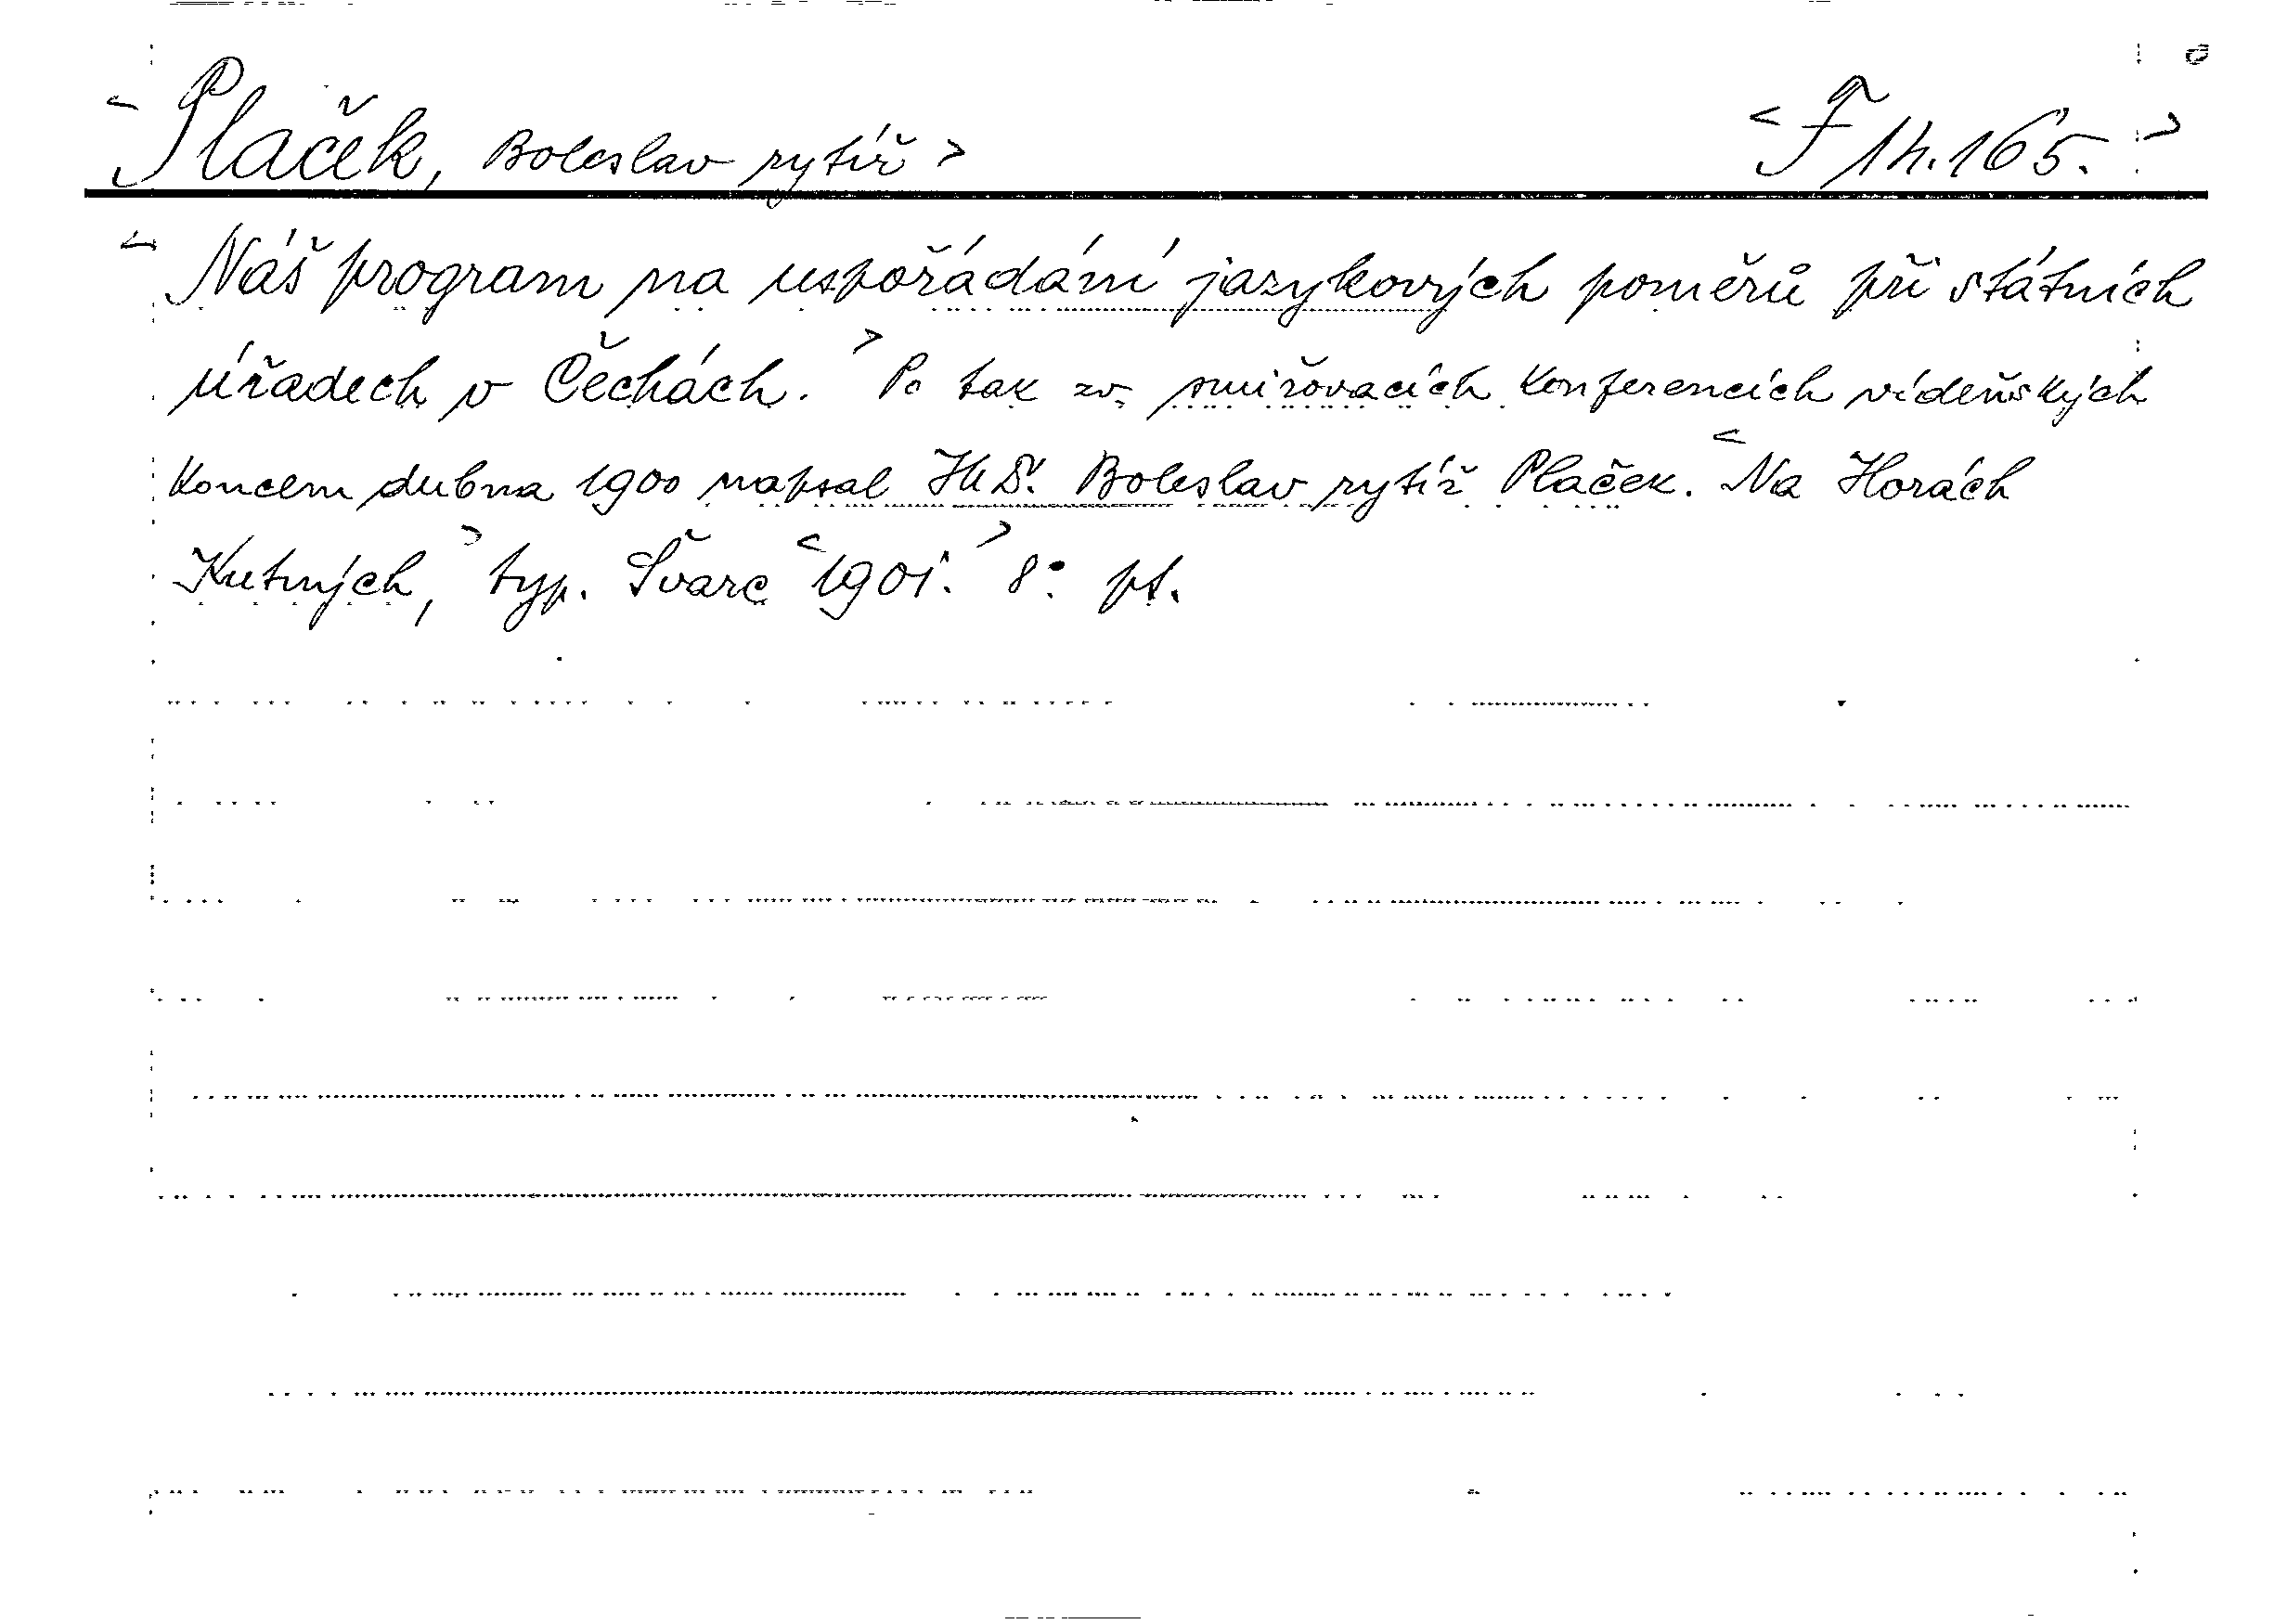 <Plaček, Boleslav rytíř> <F 14.165.>
<Náš program na uspořádání jazykových poměrů při státních
úřadech v Čechách.> Po tak zv. smiřovacích konferencích vídeňských
koncem dubna 1900 napsal JUDr. Boleslav rytíř Plaček. <Na Horách
Kutných,> typ. Švarc <1901.> 8° pt.